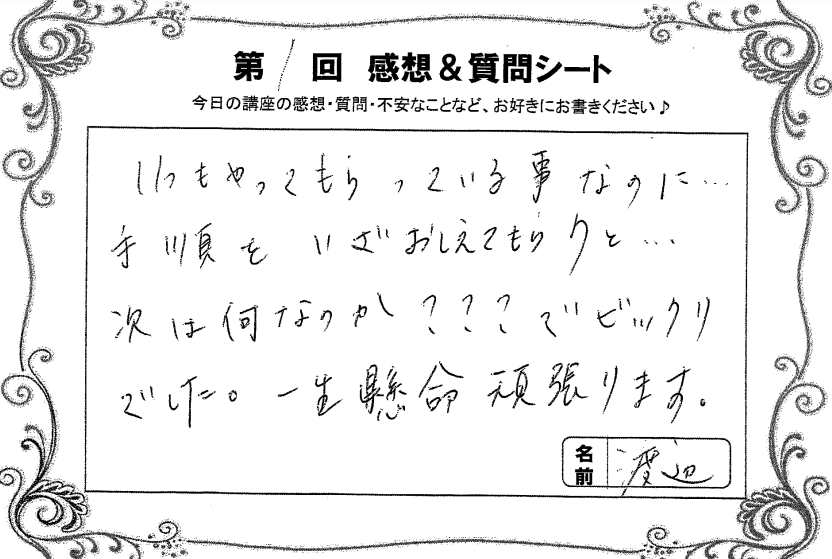 第1回 感想&質問シート
今日の講座の感想・質問・不安なことなど、お好きにお書きください♪
いつもやってもらっている事なのに…
手順を いざおしえてもらうと…
次は何なのか???でビックリ
でした。一生懸命頑張ります。
名前 渡辺